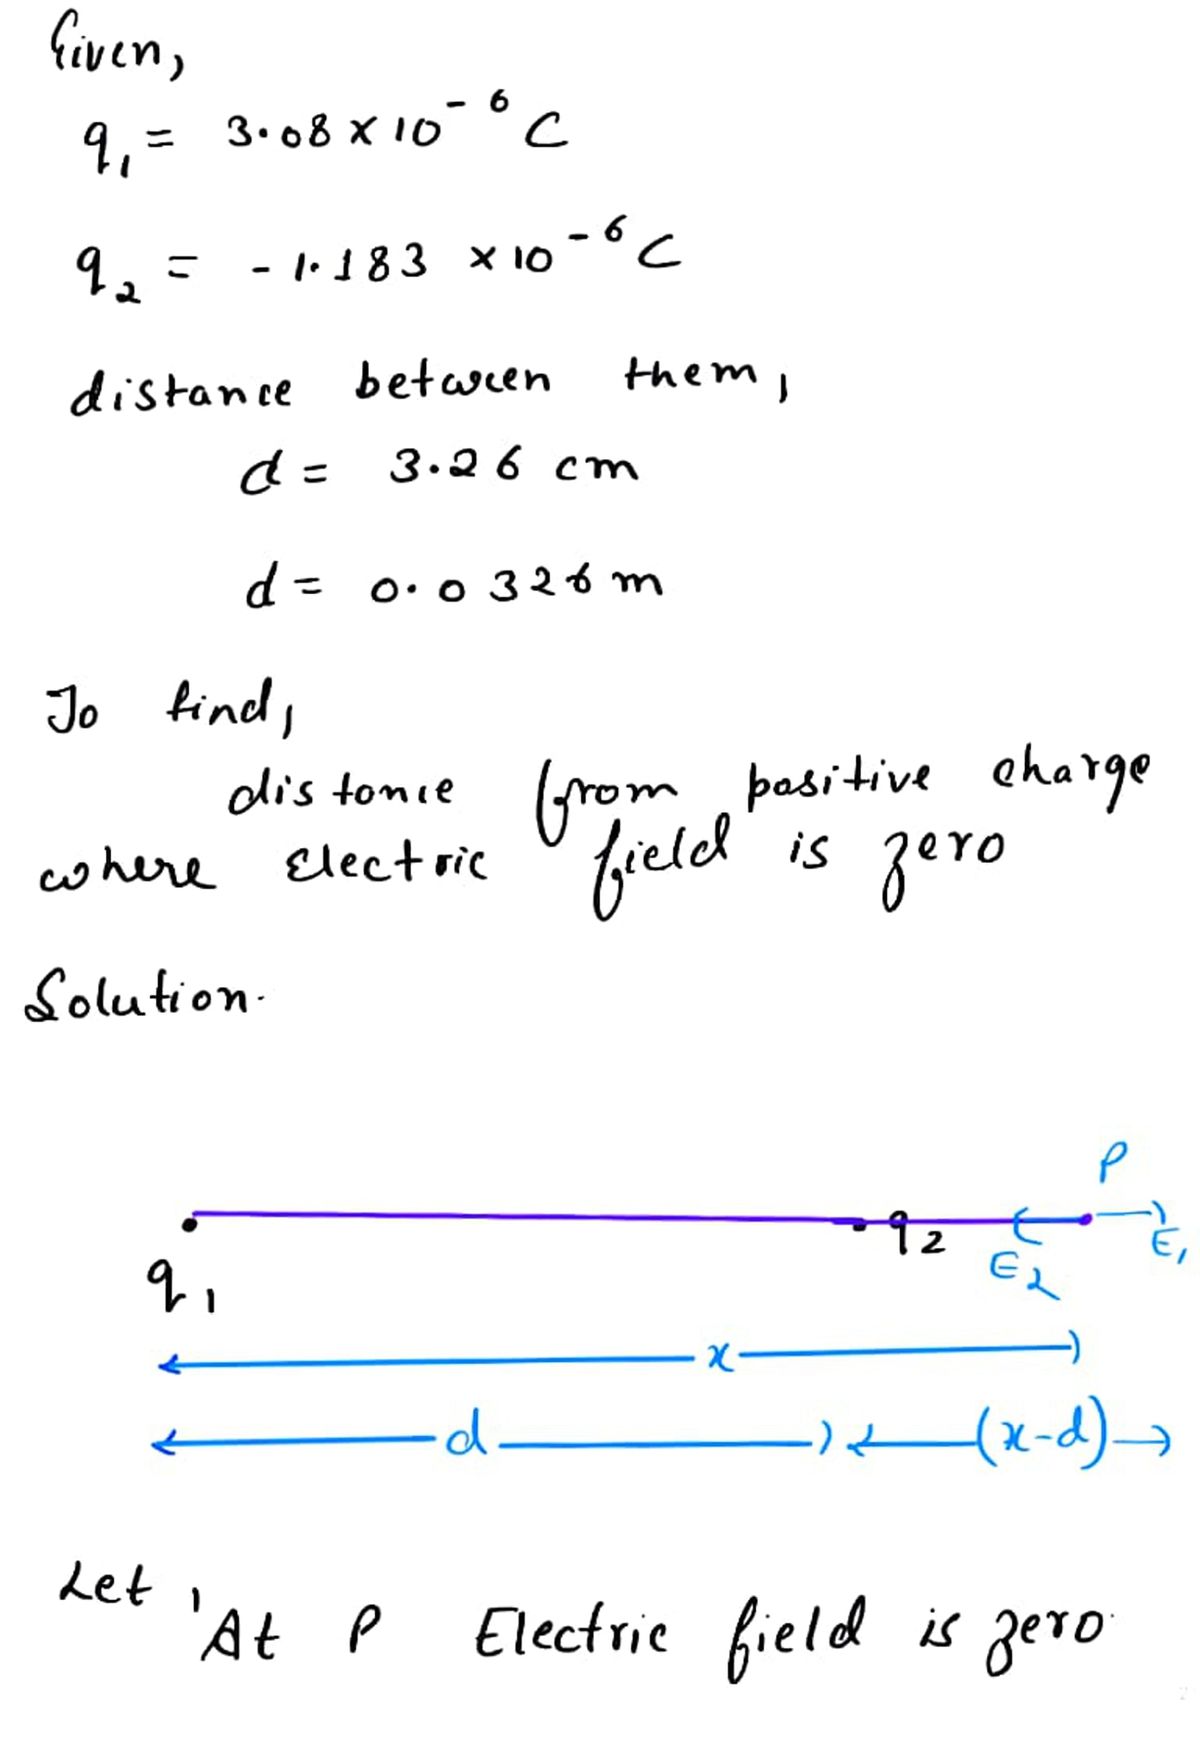 Given,
q₁ = 3.08 × 10⁻⁶ C
q₂ = - 1.183 × 10⁻⁶ C
distance between them,
d = 3.26 cm
d = 0.0326 m
To find,
distance from positive charge
where Electric field is zero
Solution.
P
q₁ q₂ E₂ E₁
x
d (x-d)
Let, At P Electric field is zero.